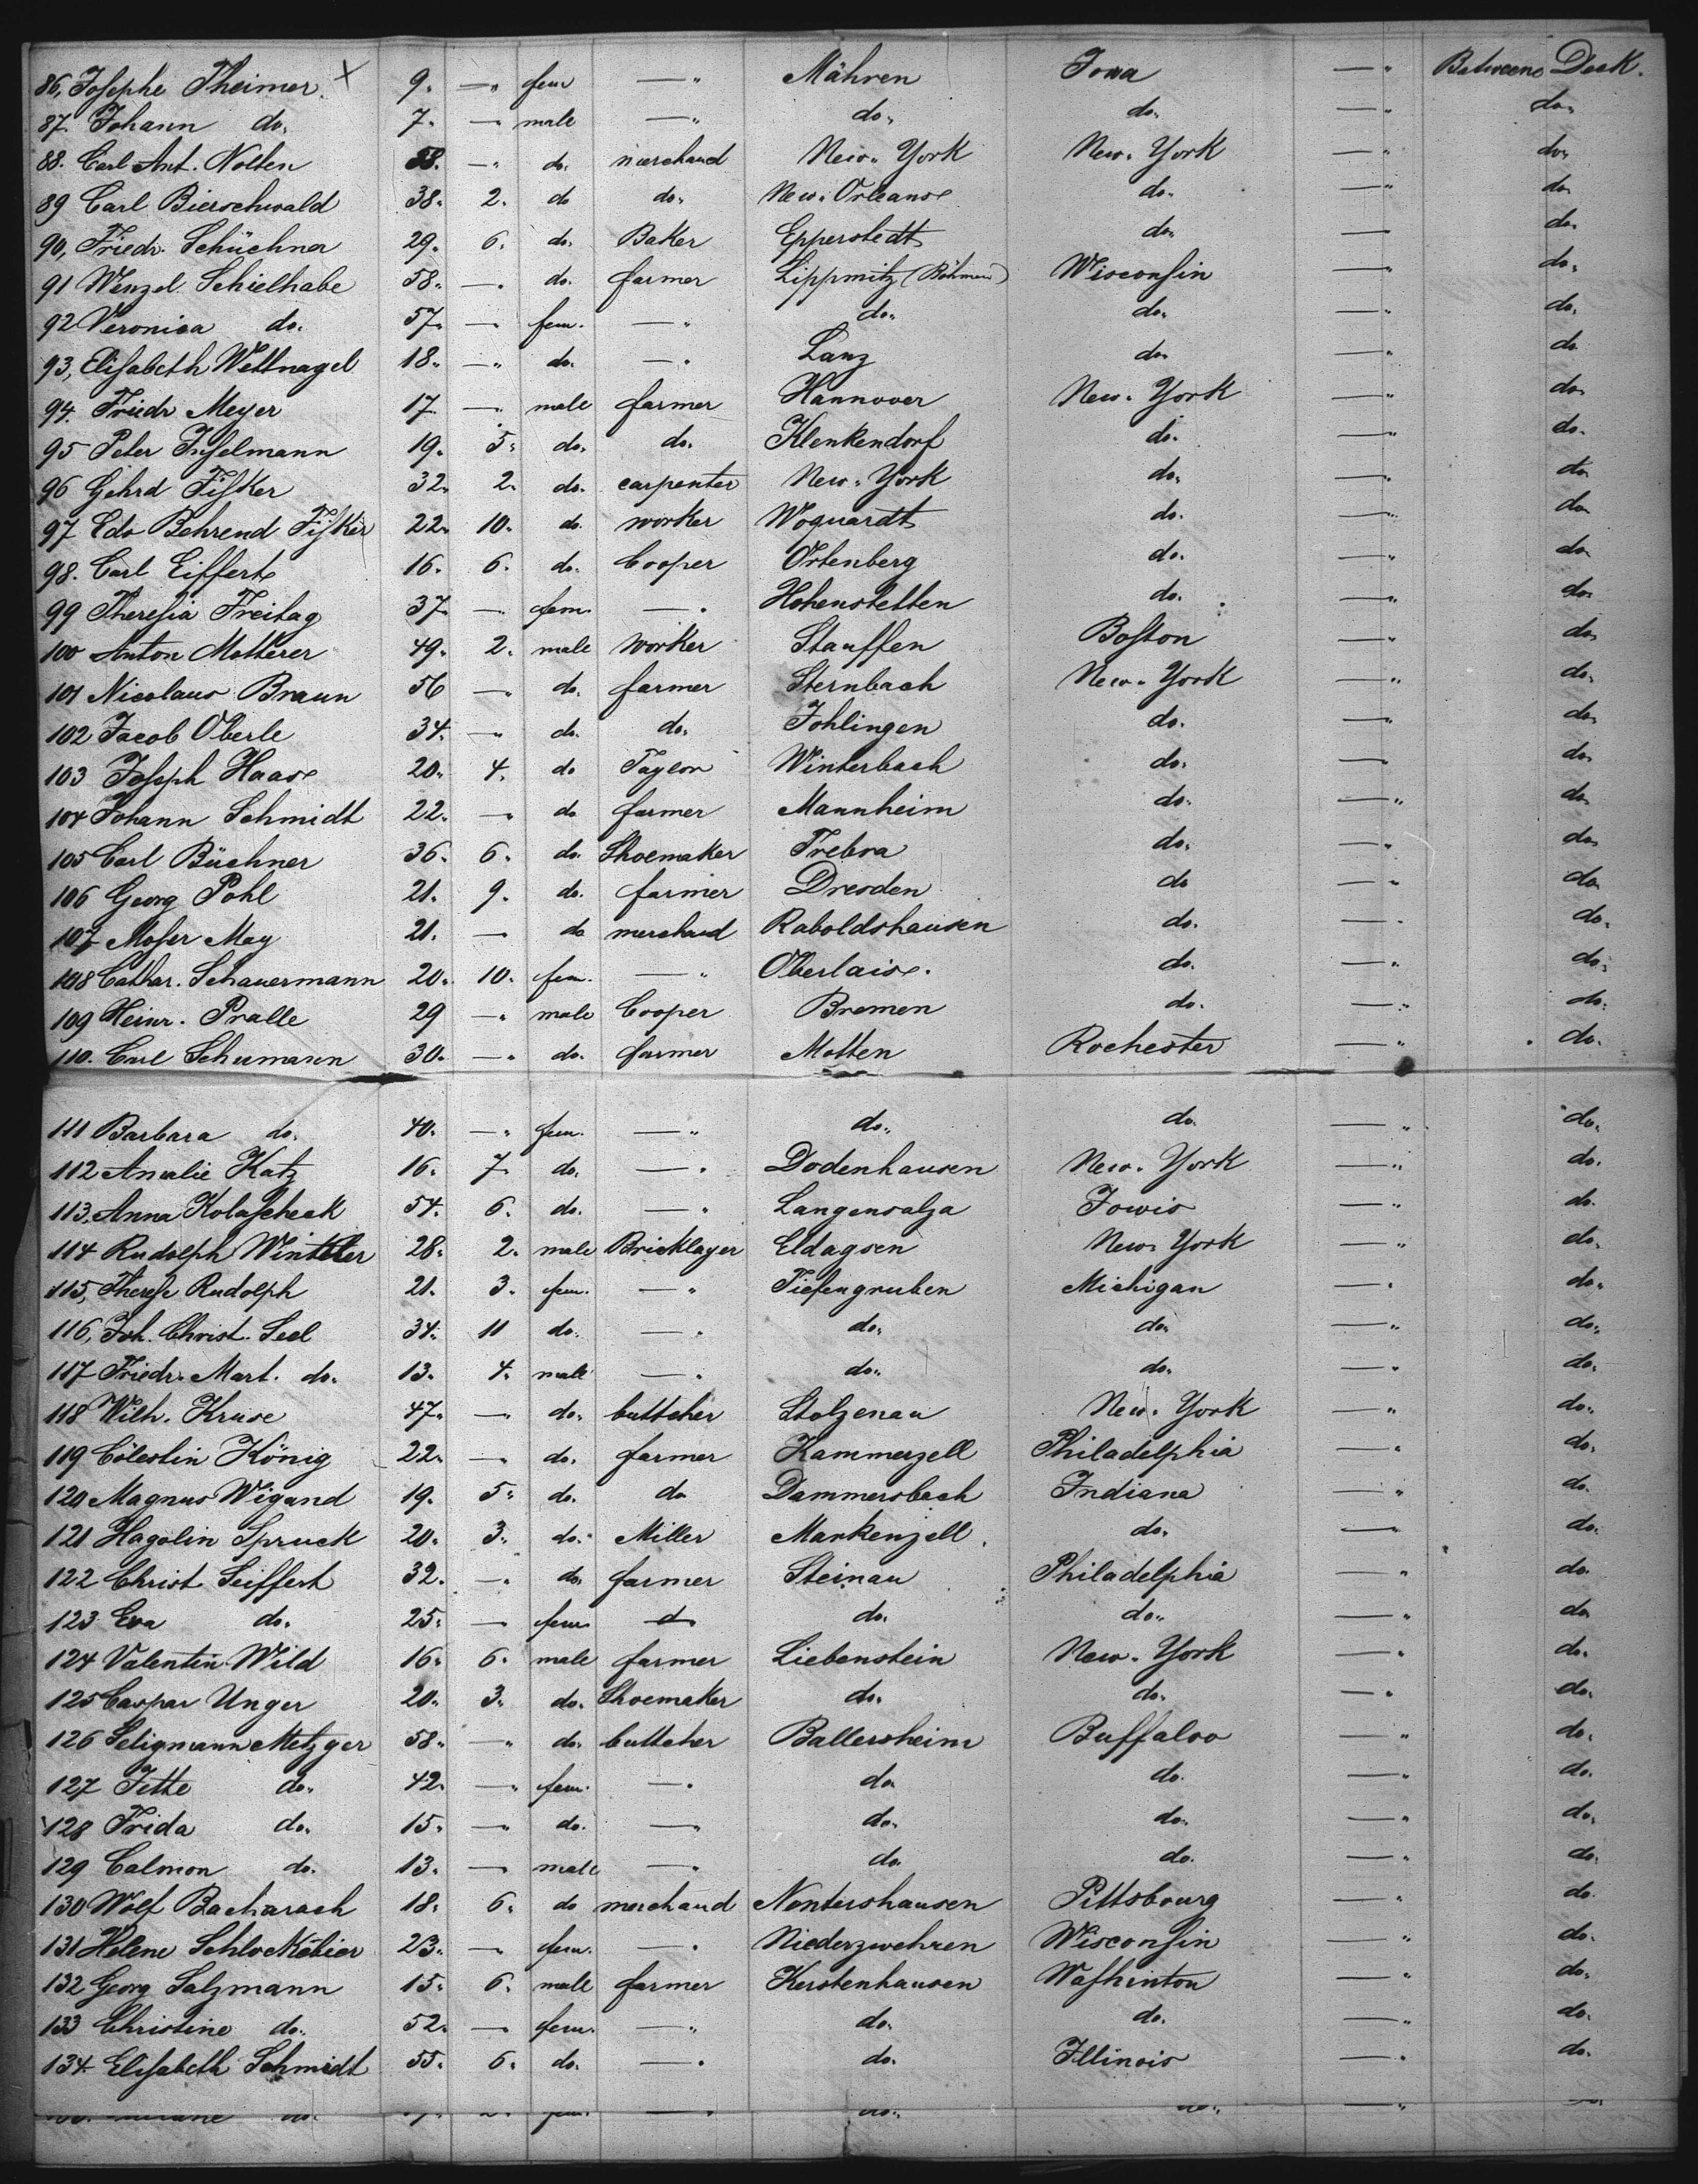 86, Josephe Theimer. × 9. —" fem —" Mähren Iowa —" Betweens Deck.
87. Johann do. 7. — male —" do. do. —" do.
88. Carl Ant. Nolten 58. —" do. merchand New-York New-York —" do.
89 Carl Bierschwald 38. 2. do do. New-Orleans do. —" do.
90, Friedr. Schüchner 29. 6. do. Baker Epperstedt do. —" do.
91 Wenzel Schielhabe 58. —. do. farmer Lippmitz (Böhmen) Wisconsin —" do.
92 Veronica do. 57. — fem. —" do. do. —" do.
93, Elisabeth Wettnagel 18. —" do. —. Lanz do. —" do
94. Friedr Meyer 17. —. male farmer Hannover New-York —" do.
95 Peter Inselmann 19. 5. do. do. Klenkendorf do. —" do.
96 Gehrd Fisker 32. 2. do. carpenter New-York do. —" do.
97 Edo Behrend Fisker 22. 10. do. worker Woquardt do. —" do.
98. Carl Eiffert 16. 6. do. Cooper Ortenberg do. —" do.
99 Theresia Freitag 37. —. fem. —. Hohenstetten do. —" do.
100 Anton Motterer 49. 2. male Worker Stauffen Boston —" do.
101 Nicolaus Braun 56 —. do. farmer Sternbach New-York —" do.
102 Jacob Oberle 34. —. do. do. Johlingen do. —" do.
103 Joseph Haase 20. 4. do Taylor Winterbach do. —" do.
104 Johann Schmidt 22. —. do farmer Mannheim do. —" do.
105 Carl Büchner 36. 6. do. Shoemaker Trebra do. —" do.
106 Georg Pohl 21. 9. do. farmer Dresden do —" do.
107 Moser May 21. — do merchand Raboldshausen do. —" do.
108 Cathar. Schauermann 20. 10. fem. —" Oberlais. do. —" do.
109 Heinr. Pralle 29 —. male Cooper Bremen do. —" do.
110. Carl Schumann 30. —. do. farmer Motten Rochester —" do.
111 Barbara do. 40. —" fem. —" do. do. —" do.
112 Amalie Katz 16. 7. do. —. Dodenhausen New-York —" do.
113, Anna Kolascheck 54. 6. do. —" Langensalza Iowis —" do.
114 Rudolph Winkler 28. 2. male Bricklayer Eldagsen New-York —" do.
115, Therese Rudolph 21. 3. fem. —" Tiefengruben Michigan —. do.
116, Joh. Christ. Seel 34. 11 do. —. do. do. —" do.
117 Friedr. Mart. do. 13. 4. male —. do. do. —. do.
118 Wilh. Kruse 47. —. do. buttcher Stolzenau New-York —" do.
119 Cölestin König 22. —. do. farmer Kammerzell Philadelphia —" do.
120 Magnus Wigand 19. 5. do. do Dammersbach Indiana —" do.
121 Hagolin Spruck 20. 3. do. Miller Markenzell. do. —" do.
122 Christ Seiffert 32. —. do. farmer Steinau Philadelphia —" do.
123 Eva do. 25. — fem. d do. do. —" do
124 Valentin Wild 16. 6. male farmer Liebenstein New-York —" do.
125 Caspar Unger 20. 3. do. Shoemaker do. do. —. do.
126 Seligmann Metzger 58. —" do. buttcher Ballersheim Buffaloo —" do.
127 Jette do. 42. —. fem. —. do. do. —" do.
128 Frida do. 15. —. do. —. do. do. —" do.
129 Calmon do. 13. — male —. do. do. —" do.
130 Wolf Bacharach 18. 6. do merchand Nentershausen Pittsbourg —" do.
131 Helene Schlockébier 23. —. fem. —. Niederzwehren Wisconsin —" do.
132 Georg Salzmann 15. 6. male farmer Kerstenhausen Washinton —" do.
133 Christine do. 52. —. fem. —" do. do. —" do.
134. Elisabeth Schmidt 55. 6. do. —. do. Illinois —. do.